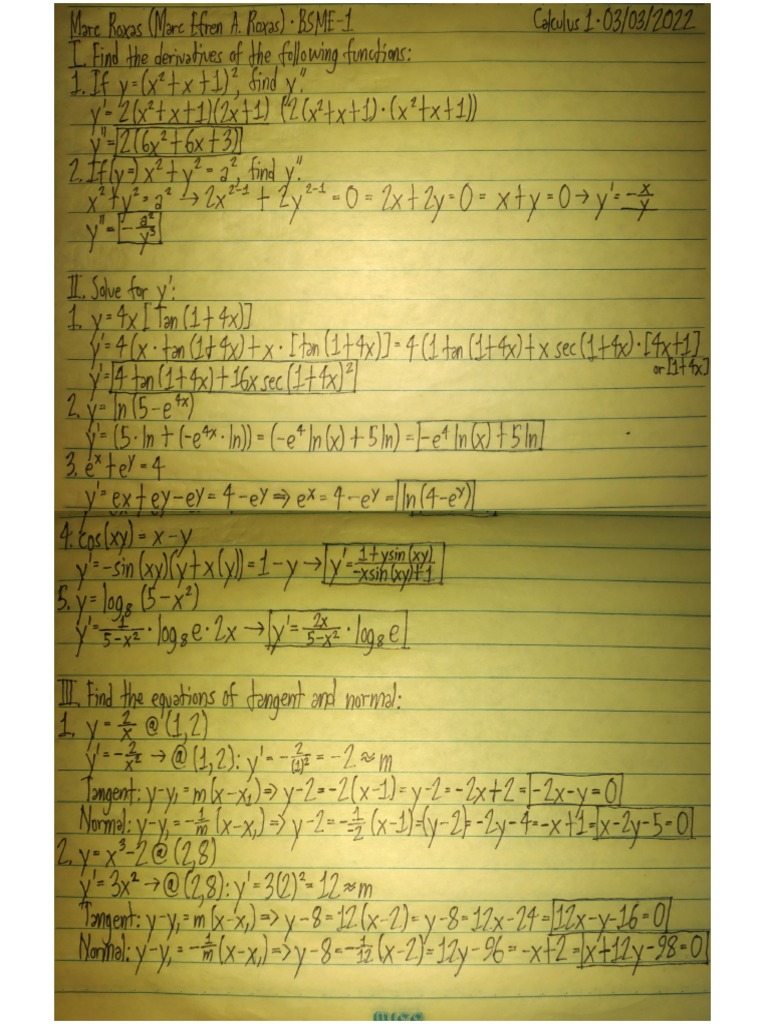 Marc Roxas (Marc Efren A. Roxas) · BSME-1 Calculus 1 · 03/03/2022
I. Find the derivatives of the following functions:
1. If y=(x²+x+1)², find y".
y'=2(x²+x+1)(2x+1) (2(x²+x+1)·(x²+x+1))
y"=2(6x²+6x+3)
2. If (y=) x²+y²=a², find y".
x²+y²=a² → 2x²⁻¹ + 2y²⁻¹ = 0 = 2x+2y=0 = x+y=0 → y'=-x/y
y"=-a²/y³
II. Solve for y':
1. y=4x[tan(1+4x)]
y'=4(x·tan(1+4x)+x·[tan(1+4x)]=4(1tan(1+4x)+x sec(1+4x)·[4x+1]
or [1+4x]
y'=4tan(1+4x)+16x sec(1+4x)²
2. y=ln(5-e⁴ˣ)
y'=(5·ln+(-e⁴ˣ·ln))=(-e⁴ln(x)+5ln)=-e⁴ln(x)+5ln
3. eˣ+eʸ=4
y'=ex+ey-ey=4-eʸ⇒eˣ=4-eʸ=ln(4-eʸ)
4. cos(xy)=x-y
y'=-sin(xy)(y+x(y))=1-y→y'=1+ysin(xy)/-xsin(xy)+1
5. y=log₈(5-x²)
y'=1/5-x²·log₈e·2x→y'=2x/5-x²·log₈e
III. Find the equations of tangent and normal:
1. y=2/x @ (1,2)
y'=-2/x²→@(1,2): y'=-2/(1)²=-2≈m
Tangent: y-y₁=m(x-x₁)⇒y-2=-2(x-1)=y-2=-2x+2=-2x-y=0
Normal: y-y₁=-1/m(x-x₁)⇒y-2=-1/-2(x-1)=(y-2)=-2y-4=-x+1=x-2y-5=0
2. y=x³-2@(2,8)
y'=3x²→@(2,8): y'=3(2)²=12≈m
Tangent: y-y₁=m(x-x₁)⇒y-8=12(x-2)=y-8=12x-24=12x-y-16=0
Normal: y-y₁=-1/m(x-x₁)⇒y-8=-1/12(x-2)=12y-96=-x+2=x+12y-98=0